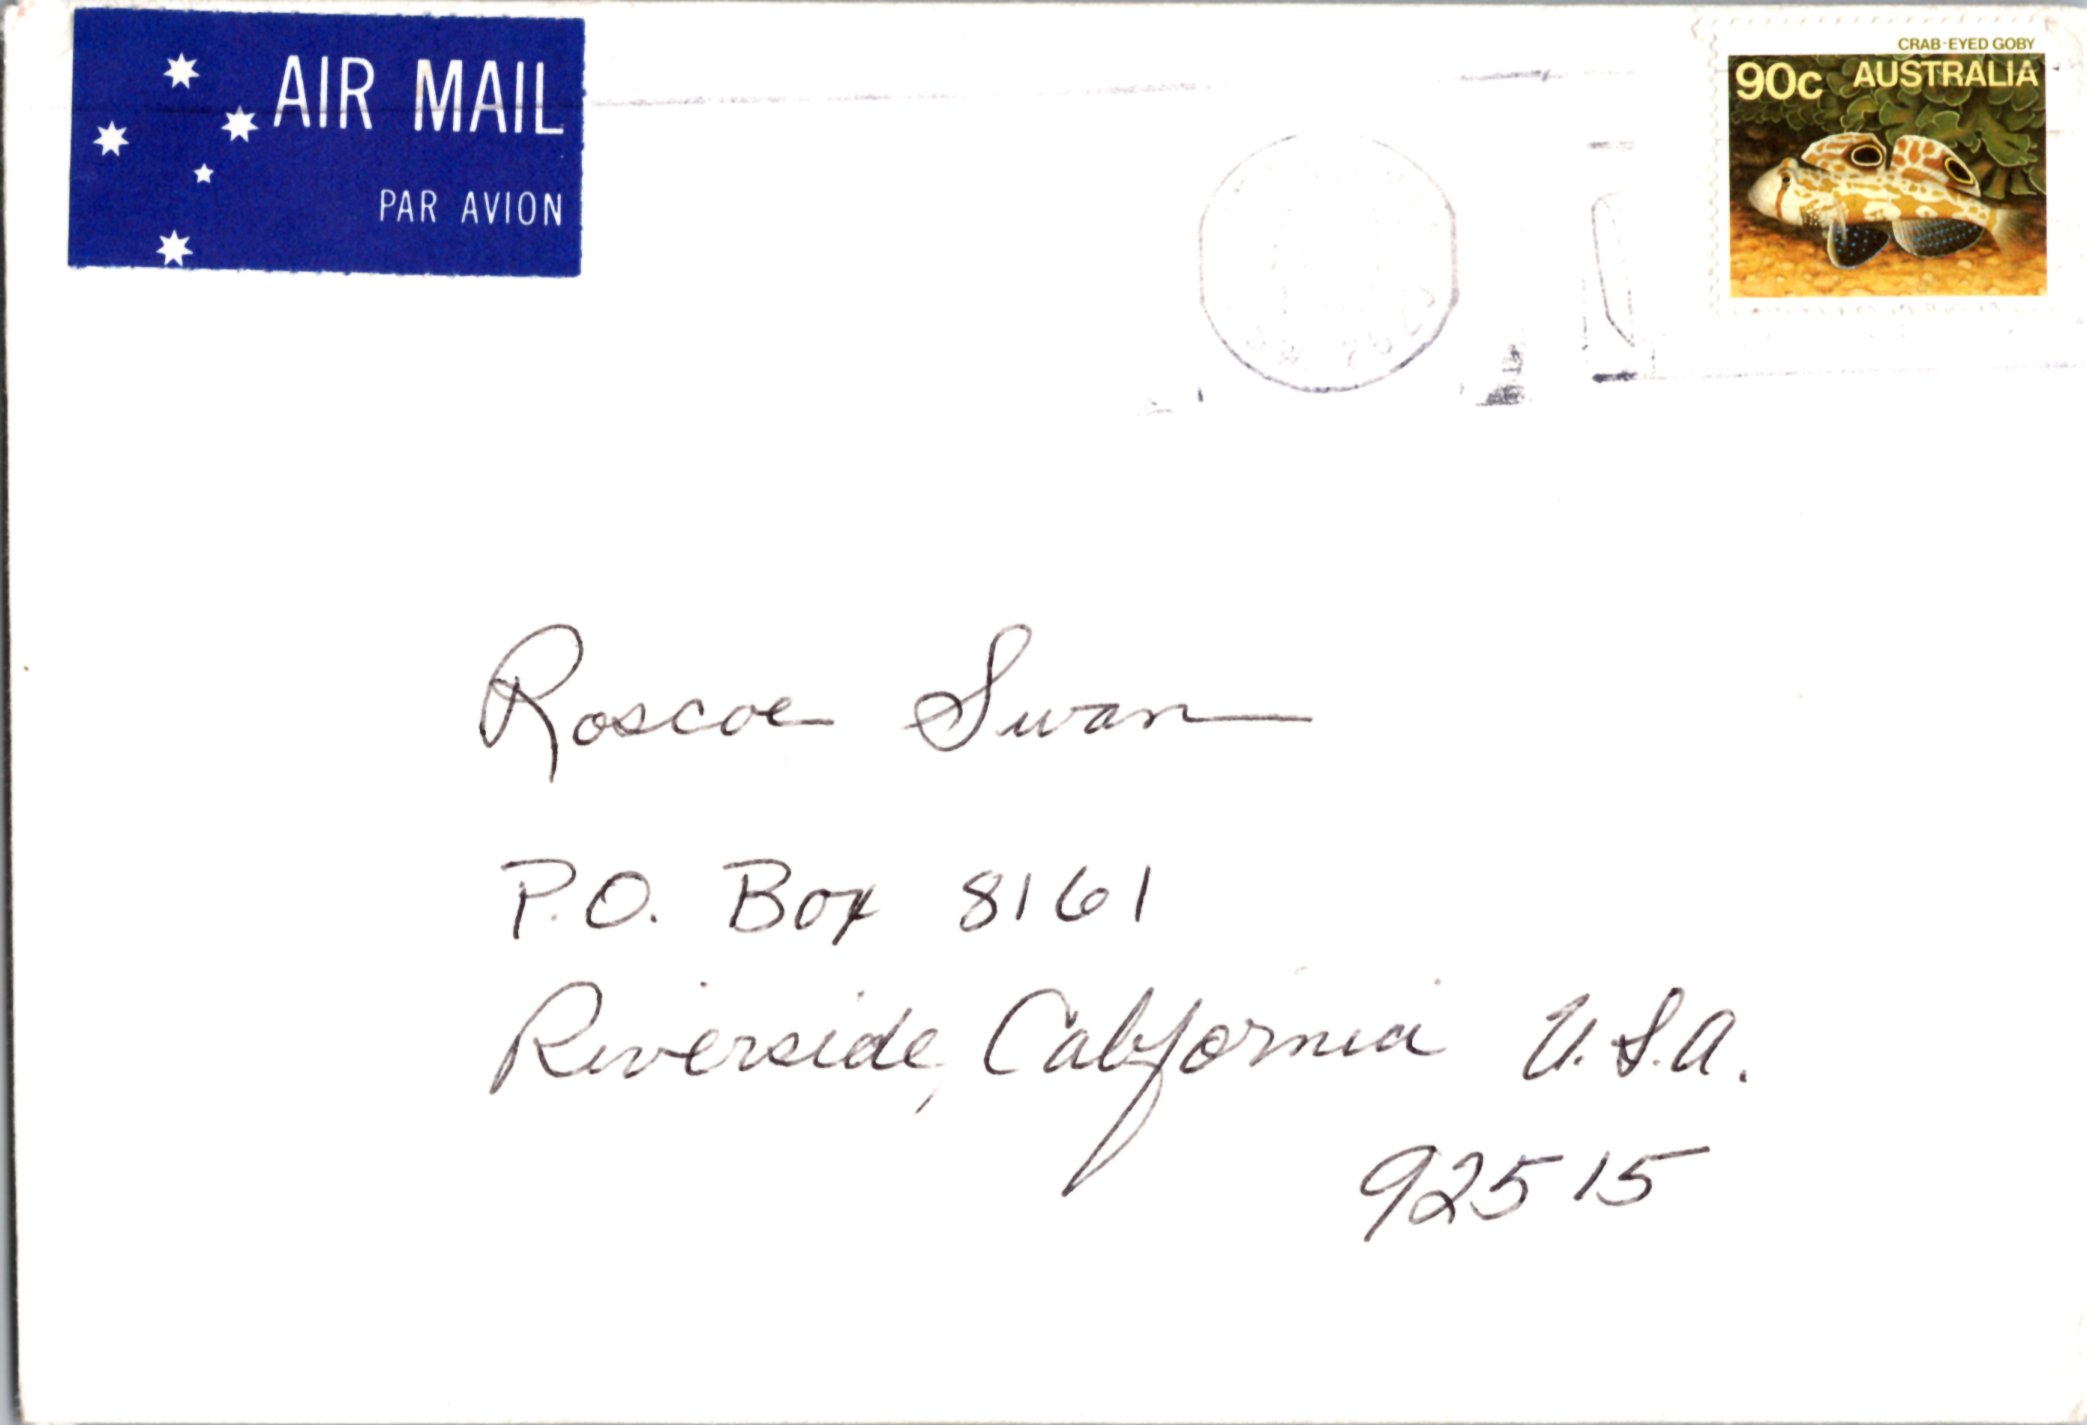 AIR MAIL
PAR AVION
CRAB-EYED GOBY
90c AUSTRALIA
Roscoe Swan
P.O. Box 8161
Riverside, California U.S.A.
92515